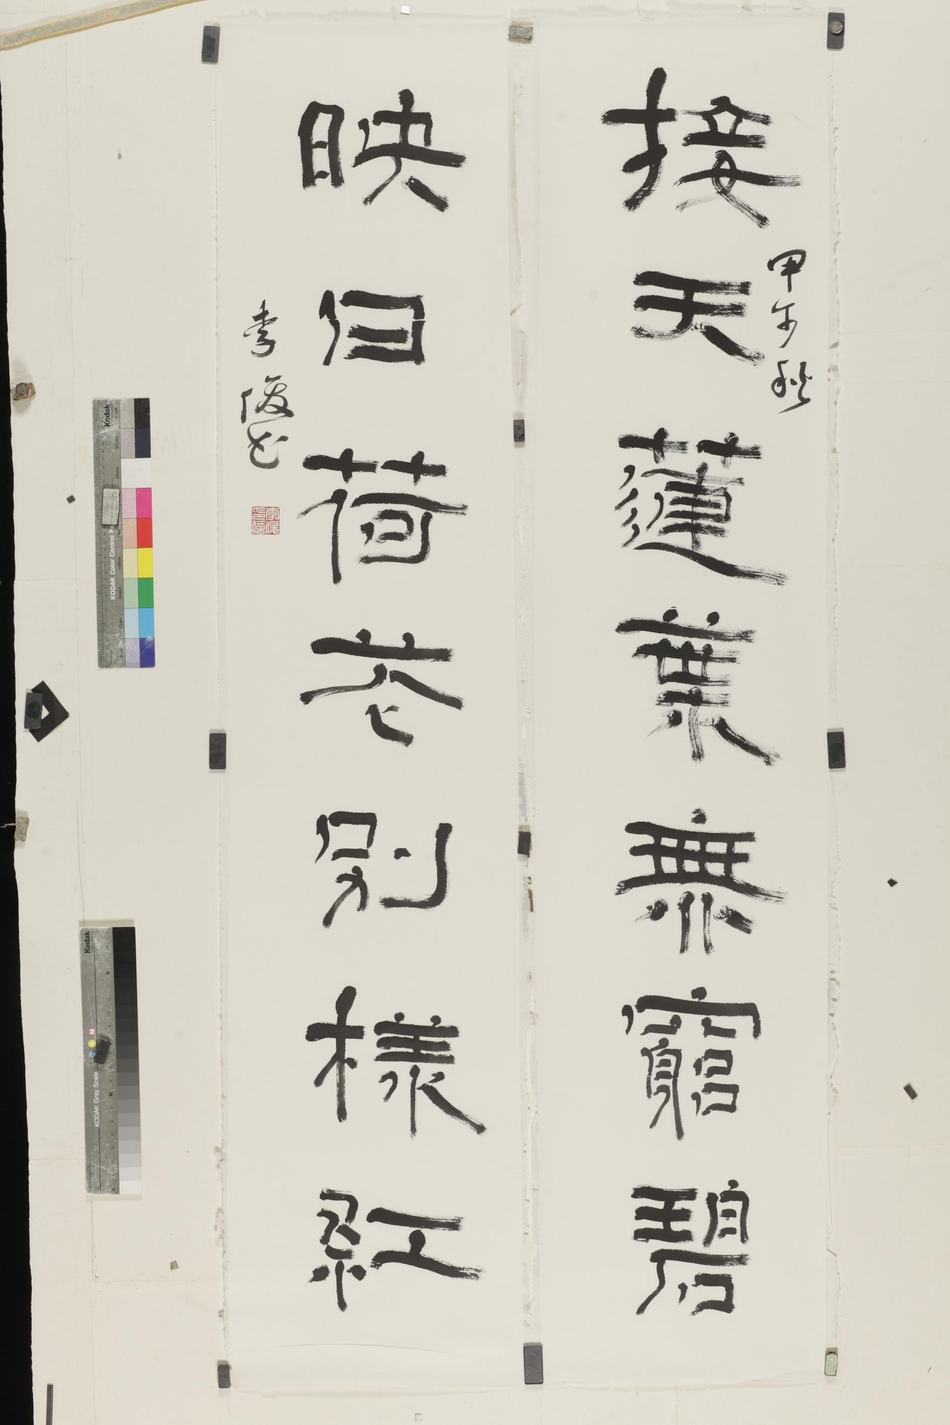 接天蓮葉無窮碧
甲午秋
映日荷花別樣紅
李俊书
Kodak
KODAK Color Control
Kodak
KODAK Gray Scale